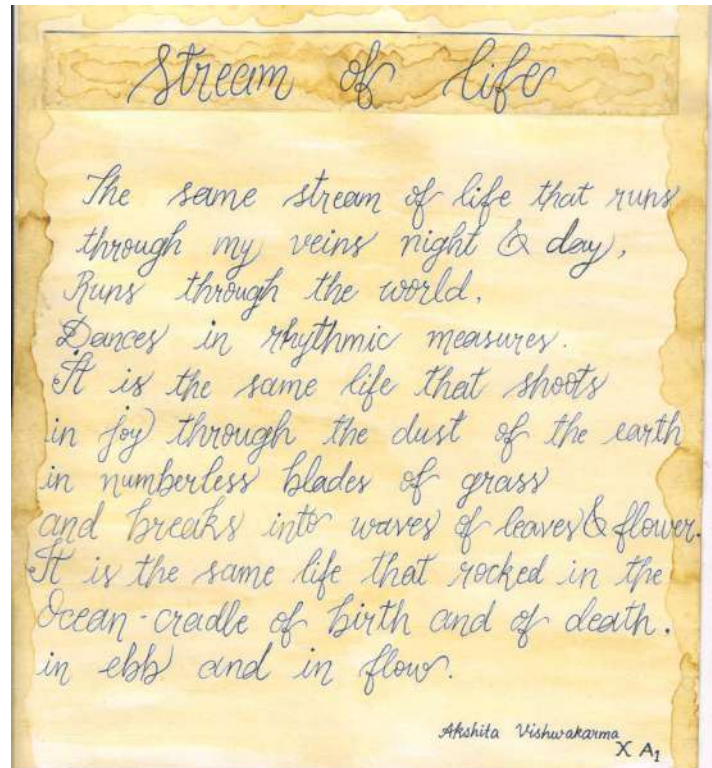 Stream of life
The same stream of life that runs
through my veins night & day,
Runs through the world.
Dances in rhythmic measures.
It is the same life that shoots
in joy through the dust of the earth
in numberless blades of grass
and breaks into waves of leaves & flower.
It is the same life that rocked in the
Ocean-cradle of birth and of death.
in ebb and in flow.
Akshita Vishwakarma
X A1